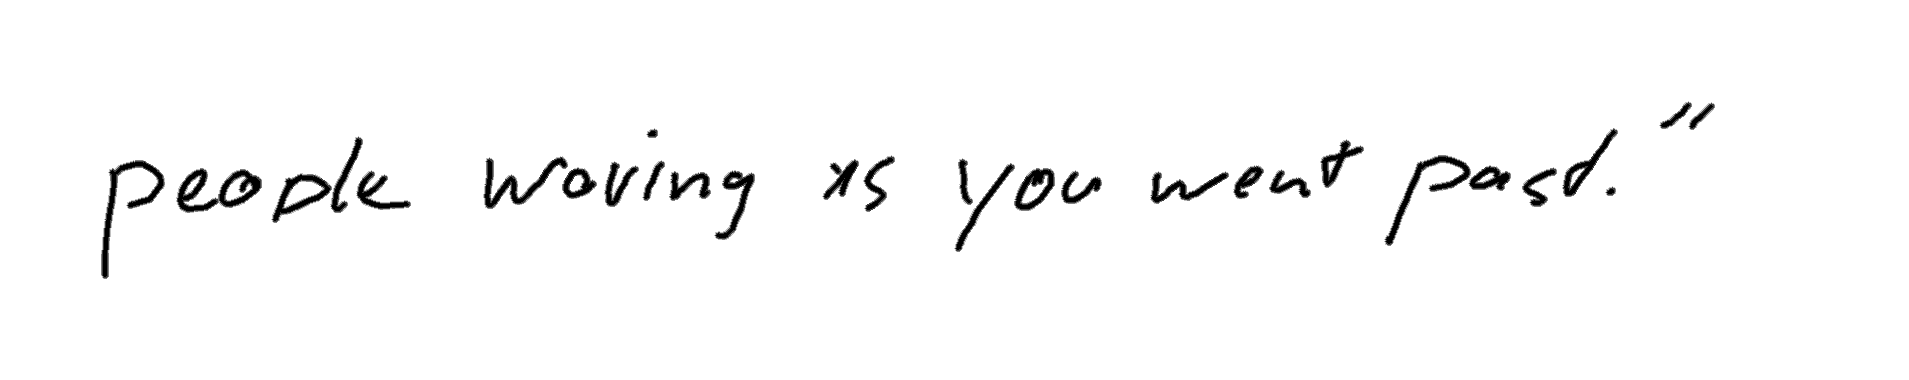 people waving as you went past."